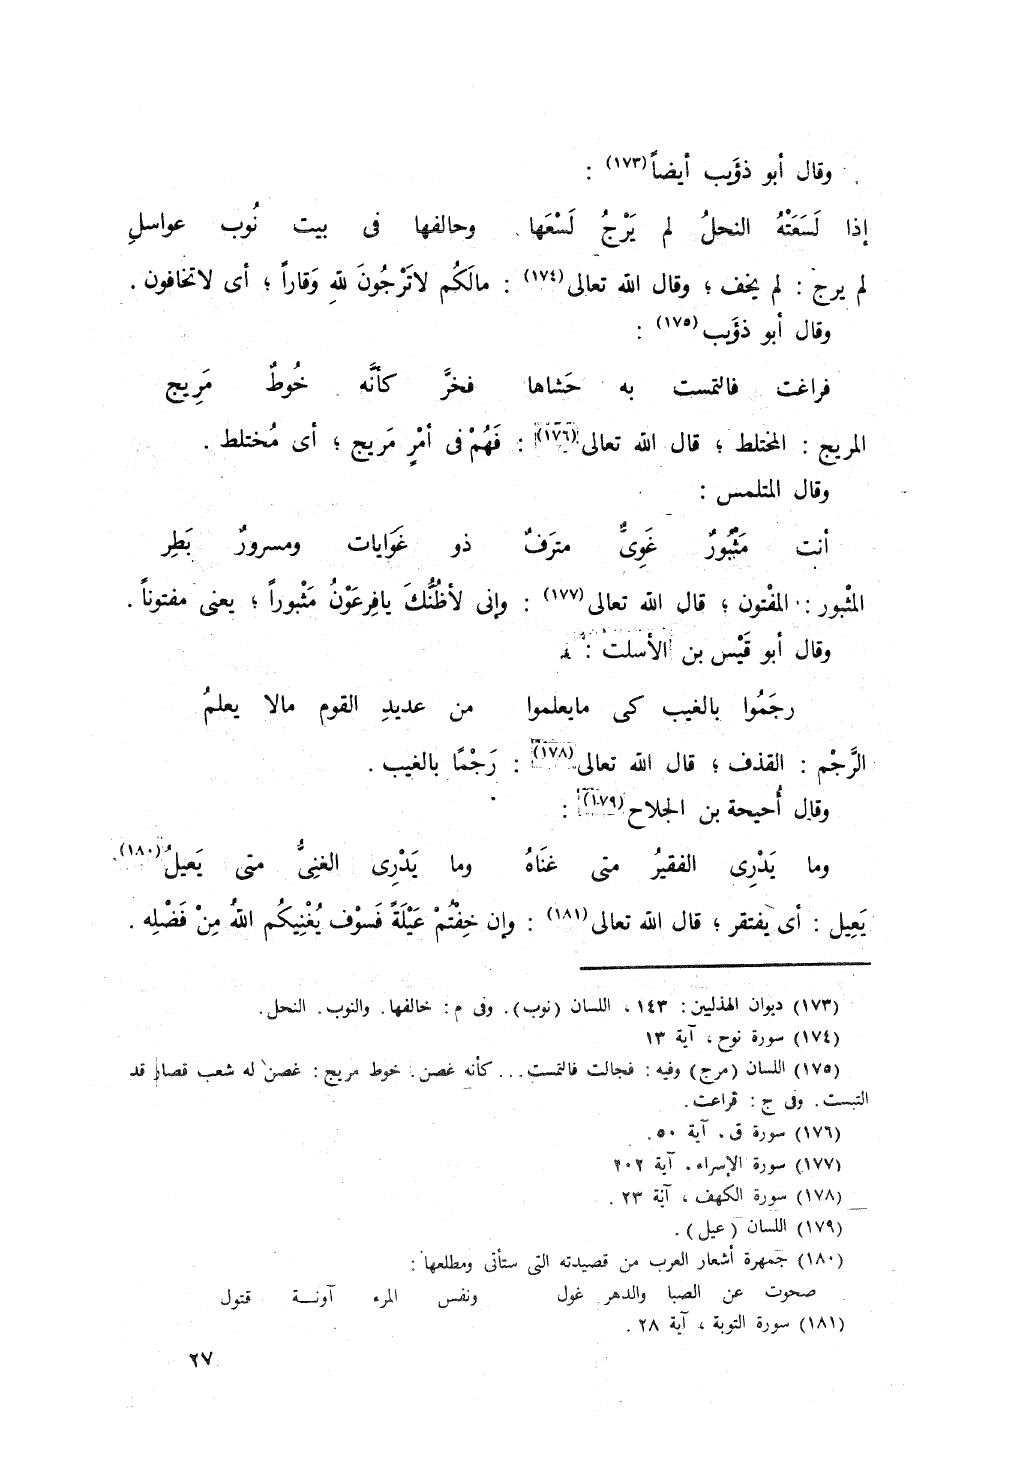 وقال أبو ذؤَيب أيضاً(١٧٣) :
إذا لَسَعَتْهُ النحلُ لم يَرْجُ لَسْعَها وحالفها فى بيت نُوب عواسلِ
لم يرج : لم يخف ؛ وقال الله تعالى(١٧٤) : مالَكُم لاتَرْجُونَ للهِ وَقاراً ؛ أى لاتخافون .
وقال أبو ذؤَيب(١٧٥) :
فراغت فالتمست به حَشاها فخرَّ كأنَّه خُوطٌ مَرِيج
المريج : المختلط ؛ قال الله تعالى(١٧٦) : فَهُمْ فى أمْرٍ مَريج ؛ أى مُختلط .
وقال المتلمس :
أنت مَثْبُورٌ غَوِىٌّ مترَفٌ ذو غَوَايات ومسرورٌ بَطِر
المثْبور : المفْتون ؛ قال الله تعالى(١٧٧) : وإنى لأظُنُّكَ يافِرعَوْنُ مَثْبوراً ؛ يعنى مفتوناً .
وقال أبو قَيْس بن الأسلت :
رجَمُوا بالغيب كى مايعلموا من عديدِ القوم مالا يعلمُ
الرَّجْم : القذف ؛ قال الله تعالى(١٧٨) : رَجْمًا بالغيب .
وقال أُحيحة بن الجلاح(١٧٩) :
وما يَدْرِى الفقيرُ متى غنَاهُ وما يَدْرِى الغنِىُّ متى يَعيلُ(١٨٠)
يَعِيل : أى يفتقر ؛ قال الله تعالى(١٨١) : وإن خِفْتُمْ عَيْلَةً فَسوْف يُغْنِيكُم اللهُ مِنْ فَضْلِه .
(١٧٣) ديوان الهذليين : ١٤٣ ، اللسان (نوب) . وفى م : خالفها . والنوب . النحل .
(١٧٤) سورة نوح ، آية ١٣
(١٧٥) اللسان (مرج) وفيه : فجالت فالتمست ... كأنه غصن . خوط مريج : غصن له شعب قصار قد
التبست . وفى ج : قراعت .
(١٧٦) سورة ق . آية ٥٠ .
(١٧٧) سورة الإسراء . آية ٢٠٢
(١٧٨) سورة الكهف ، آية ٢٣ .
(١٧٩) اللسان (عيل) .
(١٨٠) جمهرة أشعار العرب من قصيدته التى ستأتى ومطلعها :
صحوت عن الصبا والدهر غول ونفس المرء آونـــة قتول
(١٨١) سورة التوبة ، آية ٢٨ .
٢٧